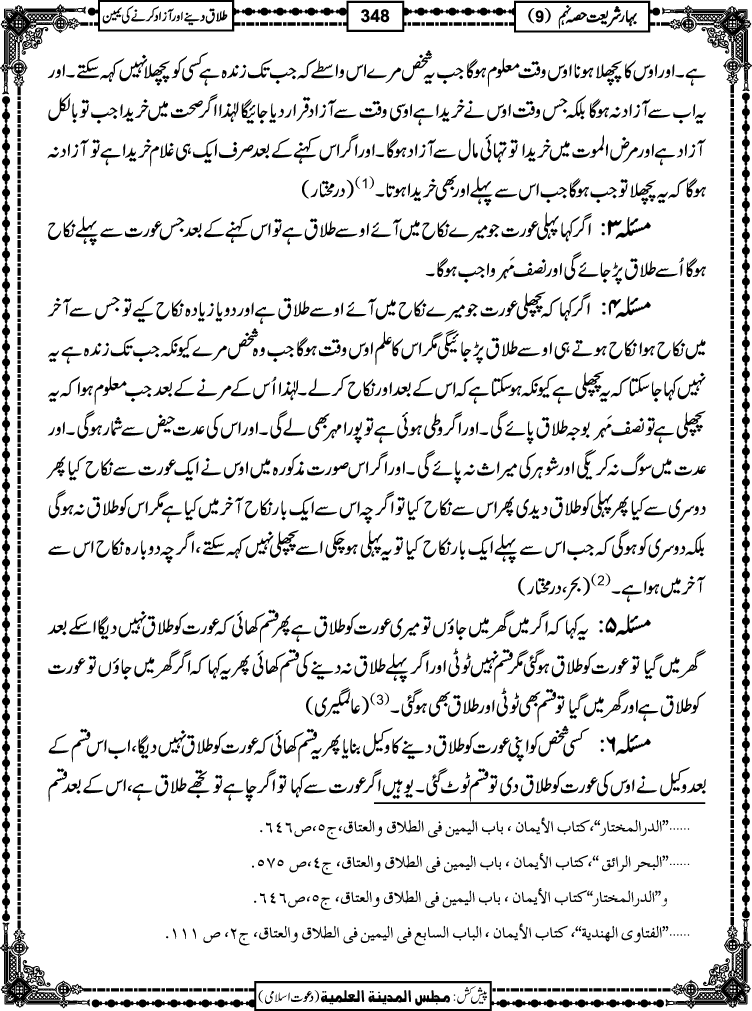 بہار شریعت حصہ نہم (9)
348
طلاق دینے اور آزاد کرنے کی یمین
ہے۔ اور اوس کا پچھلا ہونا اوس وقت معلوم ہوگا جب یہ شخص مرے اس واسطے کہ جب تک زندہ ہے کسی کو پچھلا نہیں کہہ سکتے۔ اور
یہ اب سے آزاد نہ ہوگا بلکہ جس وقت اوس نے خریدا ہے اوسی وقت سے آزاد قرار دیا جائیگا لہٰذا اگر صحت میں خریدا جب تو بالکل
آزاد ہے اور مرض الموت میں خریدا تو تہائی مال سے آزاد ہوگا۔ اور اگر اس کہنے کے بعد صرف ایک ہی غلام خریدا ہے تو آزاد نہ
ہوگا کہ یہ پچھلا تو جب ہوگا جب اس سے پہلے اور بھی خریدا ہوتا۔(1) (درمختار)
مسئلہ ۳: اگر کہا پہلی عورت جو میرے نکاح میں آئے اوسے طلاق ہے تو اس کہنے کے بعد جس عورت سے پہلے نکاح
ہوگا اُسے طلاق پڑ جائے گی اور نصف مَہر واجب ہوگا۔
مسئلہ ۴: اگر کہا کہ پچھلی عورت جو میرے نکاح میں آئے اوسے طلاق ہے اور دو یا زیادہ نکاح کیے تو جس سے آخر
میں نکاح ہوا نکاح ہوتے ہی اوسے طلاق پڑ جائیگی مگر اس کا علم اوس وقت ہوگا جب وہ شخص مرے کیونکہ جب تک زندہ ہے یہ
نہیں کہا جاسکتا کہ یہ پچھلی ہے کیونکہ ہوسکتا ہے کہ اس کے بعد اور نکاح کر لے۔ لہٰذا اُس کے مرنے کے بعد جب معلوم ہوا کہ یہ
پچھلی ہے تو نصف مَہر بوجہ طلاق پائے گی۔ اور اگر وطی ہوئی ہے تو پورا مہر بھی لے گی۔ اور اس کی عدت حیض سے شمار ہوگی۔ اور
عدت میں سوگ نہ کریگی اور شوہر کی میراث نہ پائے گی۔ اور اگر اس صورت مذکورہ میں اوس نے ایک عورت سے نکاح کیا پھر
دوسری سے کیا پھر پہلی کو طلاق دیدی پھر اس سے نکاح کیا تو اگرچہ اس سے ایک بار نکاح آخر میں کیا ہے مگر اس کو طلاق نہ ہوگی
بلکہ دوسری کو ہوگی کہ جب اس سے پہلے ایک بار نکاح کیا تو یہ پہلی ہوچکی اسے پچھلی نہیں کہہ سکتے، اگرچہ دوبارہ نکاح اس سے
آخر میں ہوا ہے۔(2) (بحر، درمختار)
مسئلہ ۵: یہ کہا کہ اگر میں گھر میں جاؤں تو میری عورت کو طلاق ہے پھر قسم کھائی کہ عورت کو طلاق نہیں دیگا اسکے بعد
گھر میں گیا تو عورت کو طلاق ہوگئی مگر قسم نہیں ٹوٹی اور اگر پہلے طلاق نہ دینے کی قسم کھائی پھر یہ کہا کہ اگر گھر میں جاؤں تو عورت
کو طلاق ہے اور گھر میں گیا تو قسم بھی ٹوٹی اور طلاق بھی ہوگئی۔(3) (عالمگیری)
مسئلہ ۶: کسی شخص کو اپنی عورت کو طلاق دینے کا وکیل بنایا پھر یہ قسم کھائی کہ عورت کو طلاق نہیں دیگا، اب اس قسم کے
بعد وکیل نے اوس کی عورت کو طلاق دی تو قسم ٹوٹ گئی۔ یوہیں اگر عورت سے کہا تو اگر چاہے تو تجھے طلاق ہے، اس کے بعد قسم
......”الدرالمختار“، کتاب الأیمان، باب الیمین فی الطلاق والعتاق، ج٥، ص٦٤٦.
......”البحر الرائق“، کتاب الأیمان، باب الیمین فی الطلاق والعتاق، ج٤، ص ٥٧٥.
و”الدرالمختار“ کتاب الأیمان، باب الیمین فی الطلاق والعتاق، ج٥، ص٦٤٦.
......”الفتاوی الھندیة“، کتاب الأیمان، الباب السابع فی الیمین فی الطلاق والعتاق، ج٢، ص ١١١.
پیش کش: مجلس المدینة العلمیة (دعوت اسلامی)